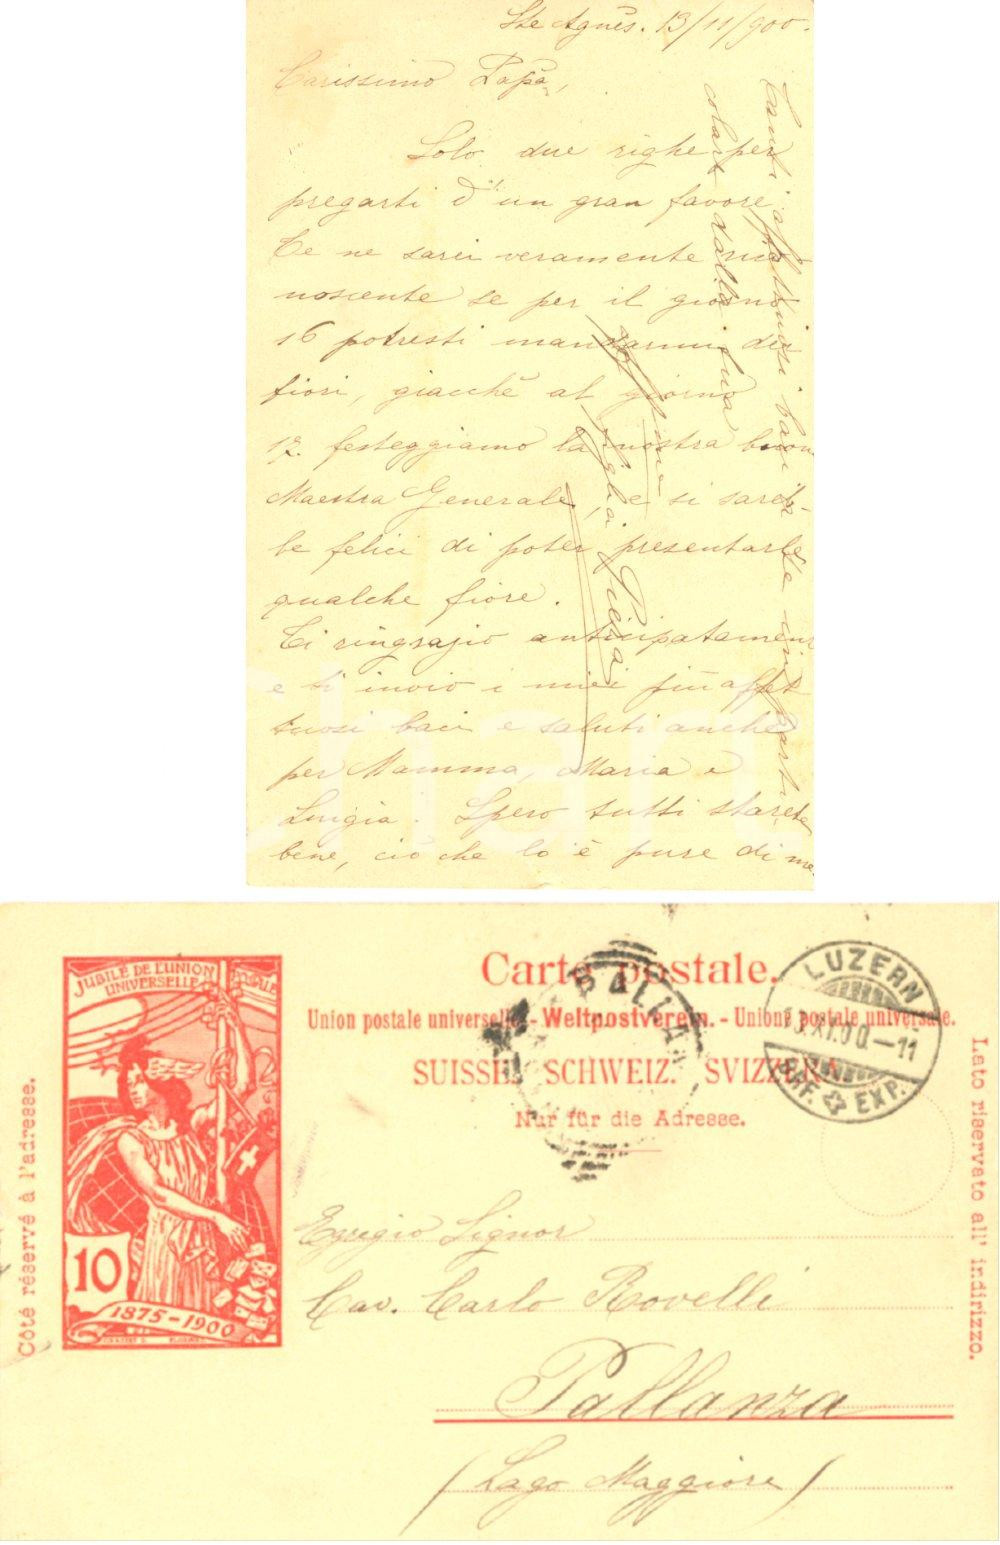 Ste Agnès. 13/11/900.
Carissimo Papa,
Solo due righe per
pregarti d'un gran favore.
Te ne sarei veramente rico
noscente se per il giorno
16 potresti mandarmi dei
fiori, giacchè al giorno
17. festeggiamo la nostra buon
Maestra Generale, e si sareb
be felici di poter presentarle
qualche fiore.
Ti ringrazio anticipatamen
e ti invio i miei più affet
tuosi baci e saluti anche
per Mamma, Maria e
Luigia. Spero tutti starete
bene, ciò che lo è pure di me.
Tanti affettuosi baci
dalla sua
aff.ma
figlia
JUBILÉ DE L'UNION
POSTALE
UNIVERSELLE
10
1875-1900
Côté réservé à l'adresse.
Carte postale.
Union postale universelle. - Weltpostverein. - Unione postale universale.
SUISSE. SCHWEIZ. SVIZZERA.
Nur für die Adresse.
LUZERN
13.XI.00.-11
BRF. EXP.
Lato riservato all' indirizzo.
Egregio Signor
Cav. Carlo Rovelli
Pallanza
(Lago Maggiore)